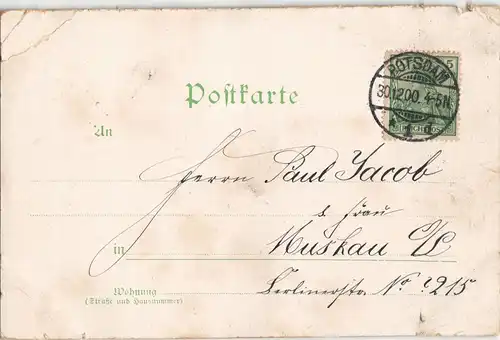 5
POTSDAM
30.12.00. 4-5N.
* 1 d
Postkarte
An
Herrn Paul Jacob
& Frau
in Muskau O/L
Wohnung
(Straße und Hausnummer)
Berlinerstr. No 215